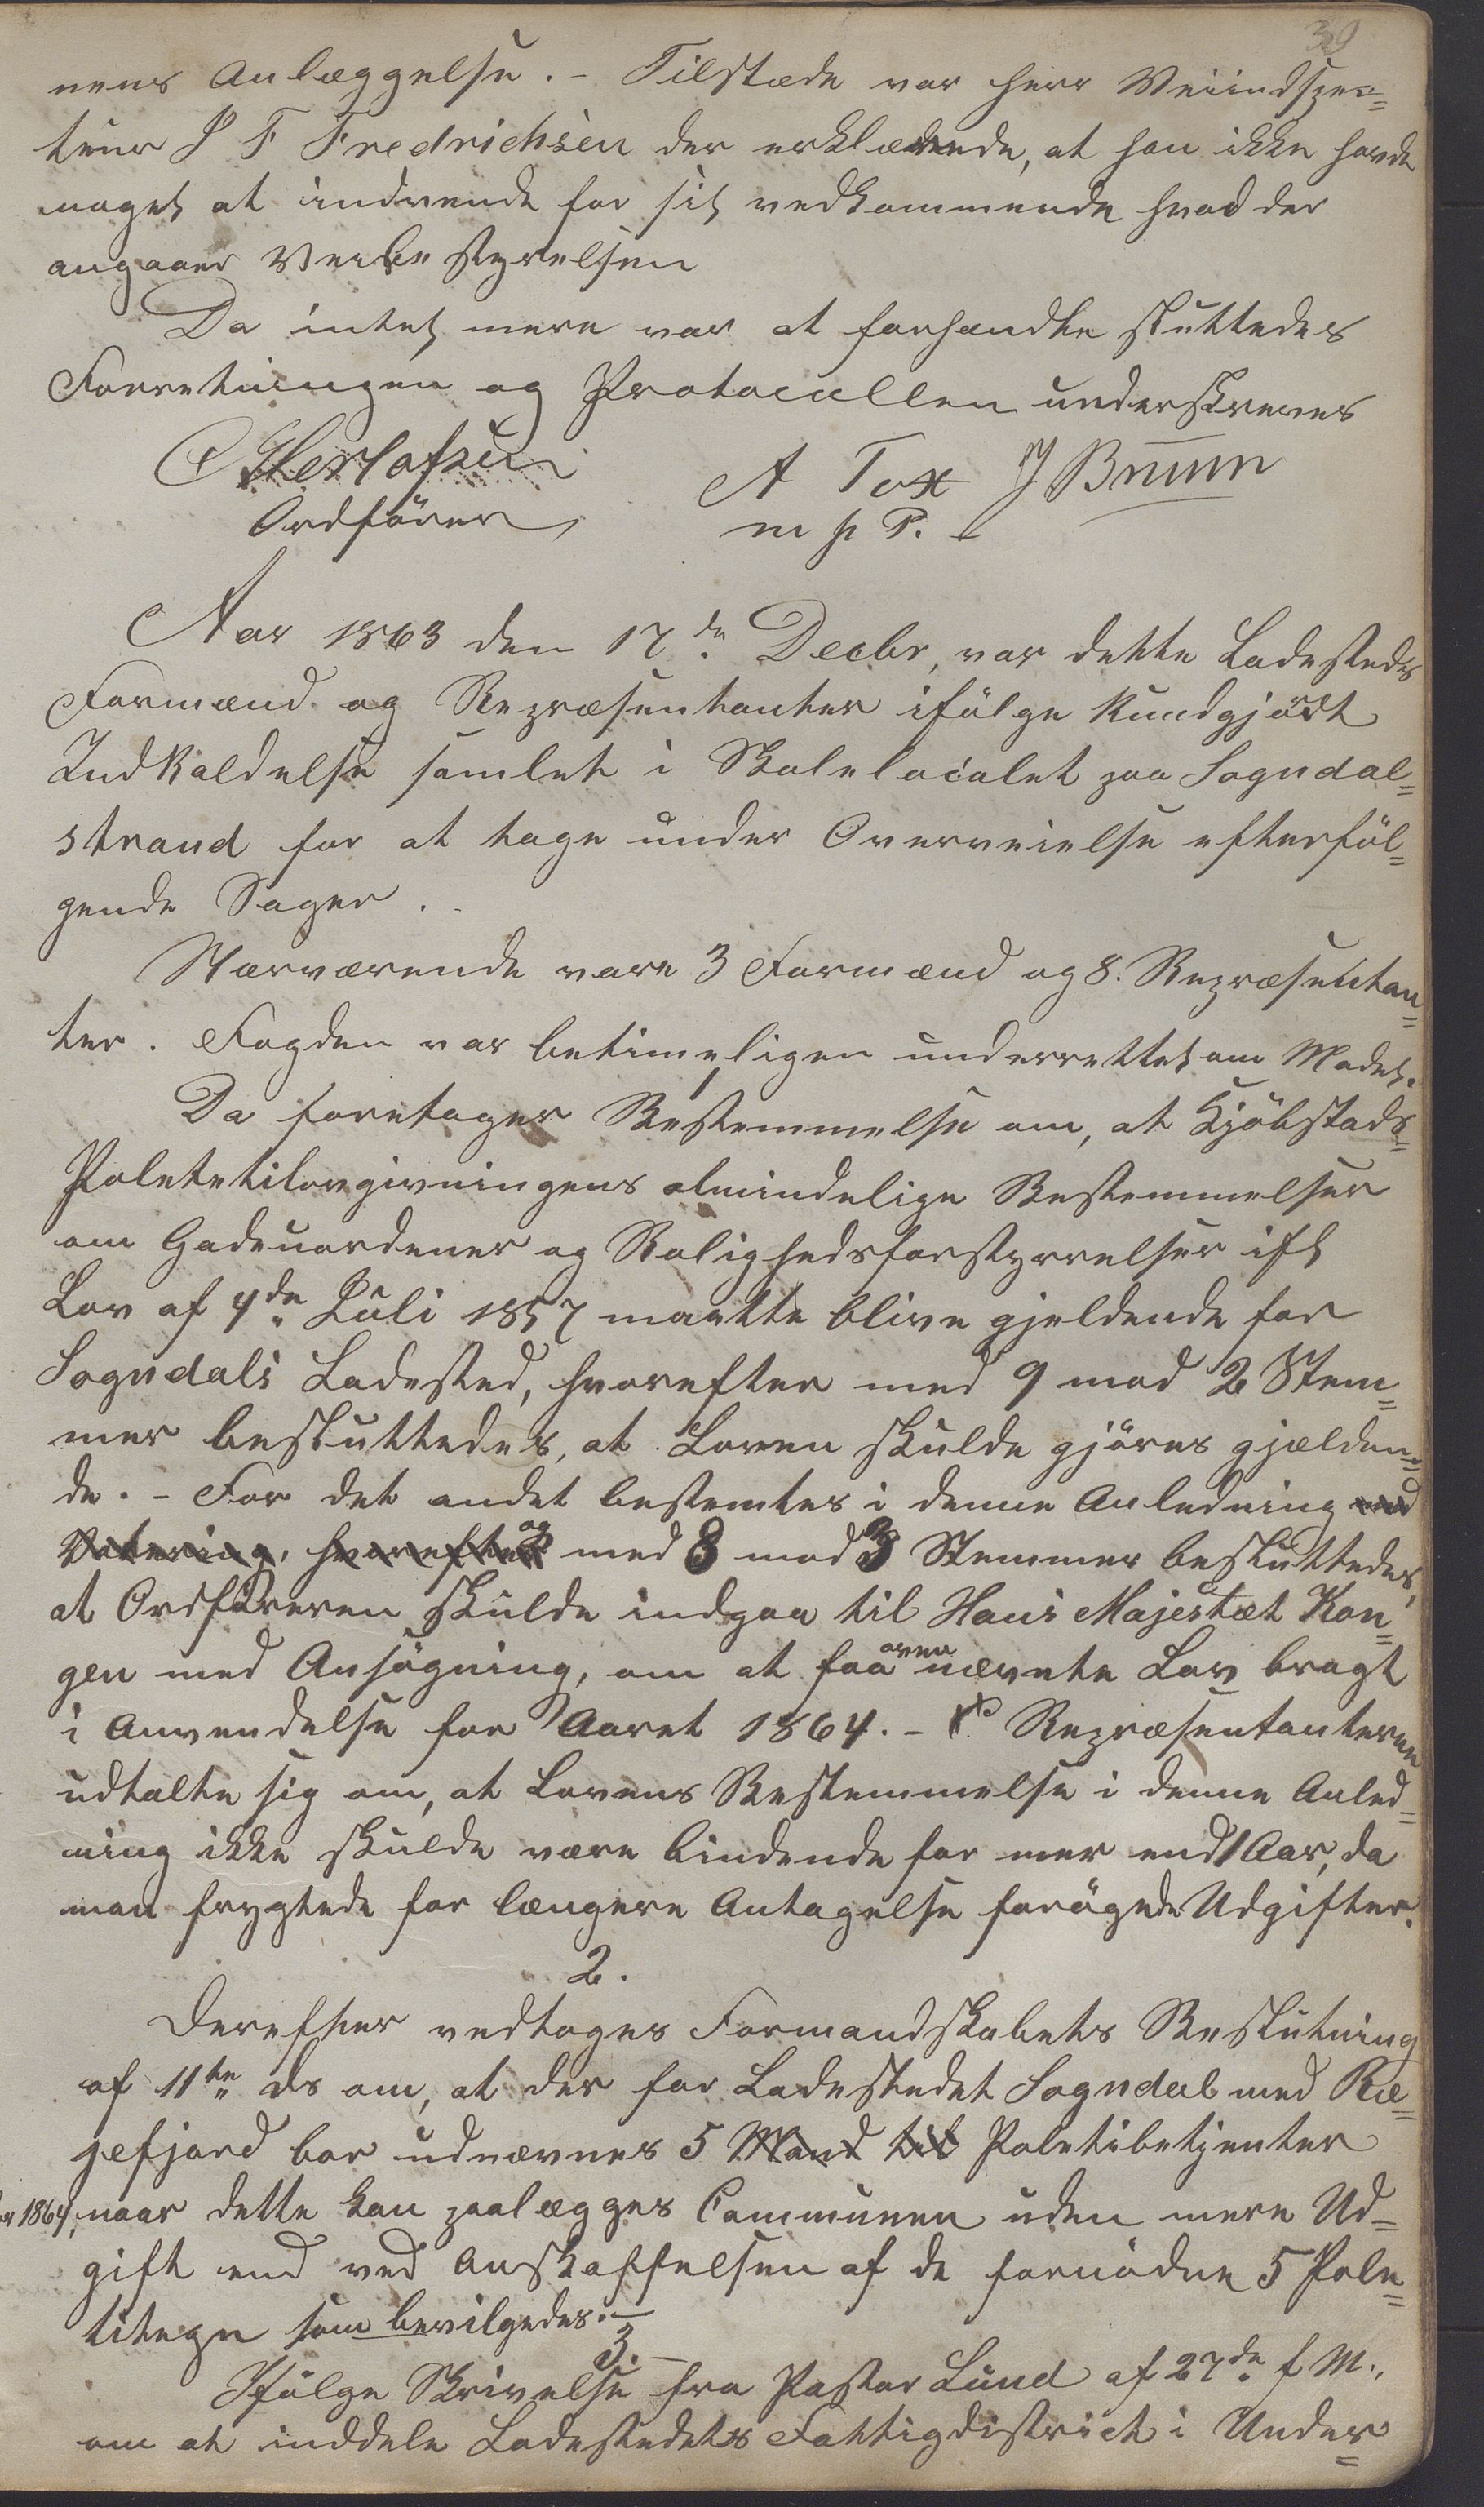 39
nens Anlæggelse. - Tilstæde var Herr Veiindspec=
teur P F Fredrichsen der erklærede, at han ikke havde
noget at indvende for sit vedkommende hvad der
angaaer Veibestyrelsen
Da intet mere var at forhandle sluttedes
Forretningen og Protocollen underskreves
Herlofsen A Tox J Bruun
Ordförer m p P.
Aar 1863 den 17de Decbr, var dette Ladesteds
Formænd og Repræsentanter ifölge kundgjört
Indkaldelse samlet i Skolelocalet paa Sogndal=
strand for at tage under Overveielse efterföl=
gende Sager.
Nærværende vare 3 Formænd og 8. Repræsentan=
ter. Fogden var betimeligen underrettet om Mødet.
Da foretages Bestemmelse om, at Kjöbstads=
Poletetilovgivningens almindelige Bestemmelser
om Gadeuordener og Rolighedsforstyrrelser ift
Lov af 4de Juli 1857 maatte blive gjeldende for
Sogndals Ladested, hvorefter med 9 mod 2 Stem=
mer besluttedes, at Loven skulde gjöres gjælden=
de. - For det andet bestemtes i denne Anledning ved
Votering, hvorefter og med 8 mod 3 Stemmer besluttedes,
at Ordföreren skulde indgaa til Hans Majestæt Kon=
gen med Ansögning, om at faa ovennævnte Lov bragt
i Anvendelse for Aaret 1864. - Repræsentanterne
udtalte sig om, at Lovens Bestemmelse i denne Anled=
ning ikke skulde være bindende for mer end 1 Aar, da
man frygtede for længere Antagelse forögede Udgifter.
2.
Derefter vedtoges Formandskabets Beslutning
af 11te ds om, at der for Ladestedet Sogndal med Ræ=
gefjord bør udnævnes 5 Mand til Poletibetjenter
for 1864, naar dette kan paalægges Communen uden mere Ud=
gift end ved Anskaffelsen af de fornödne 5 Pole=
titegn som bevilgedes. -
3.
Ifölge Skrivelse fra Pastor Lund af 27de f M.,
om at inddele Ladestedets Fattigdistrict i Under=